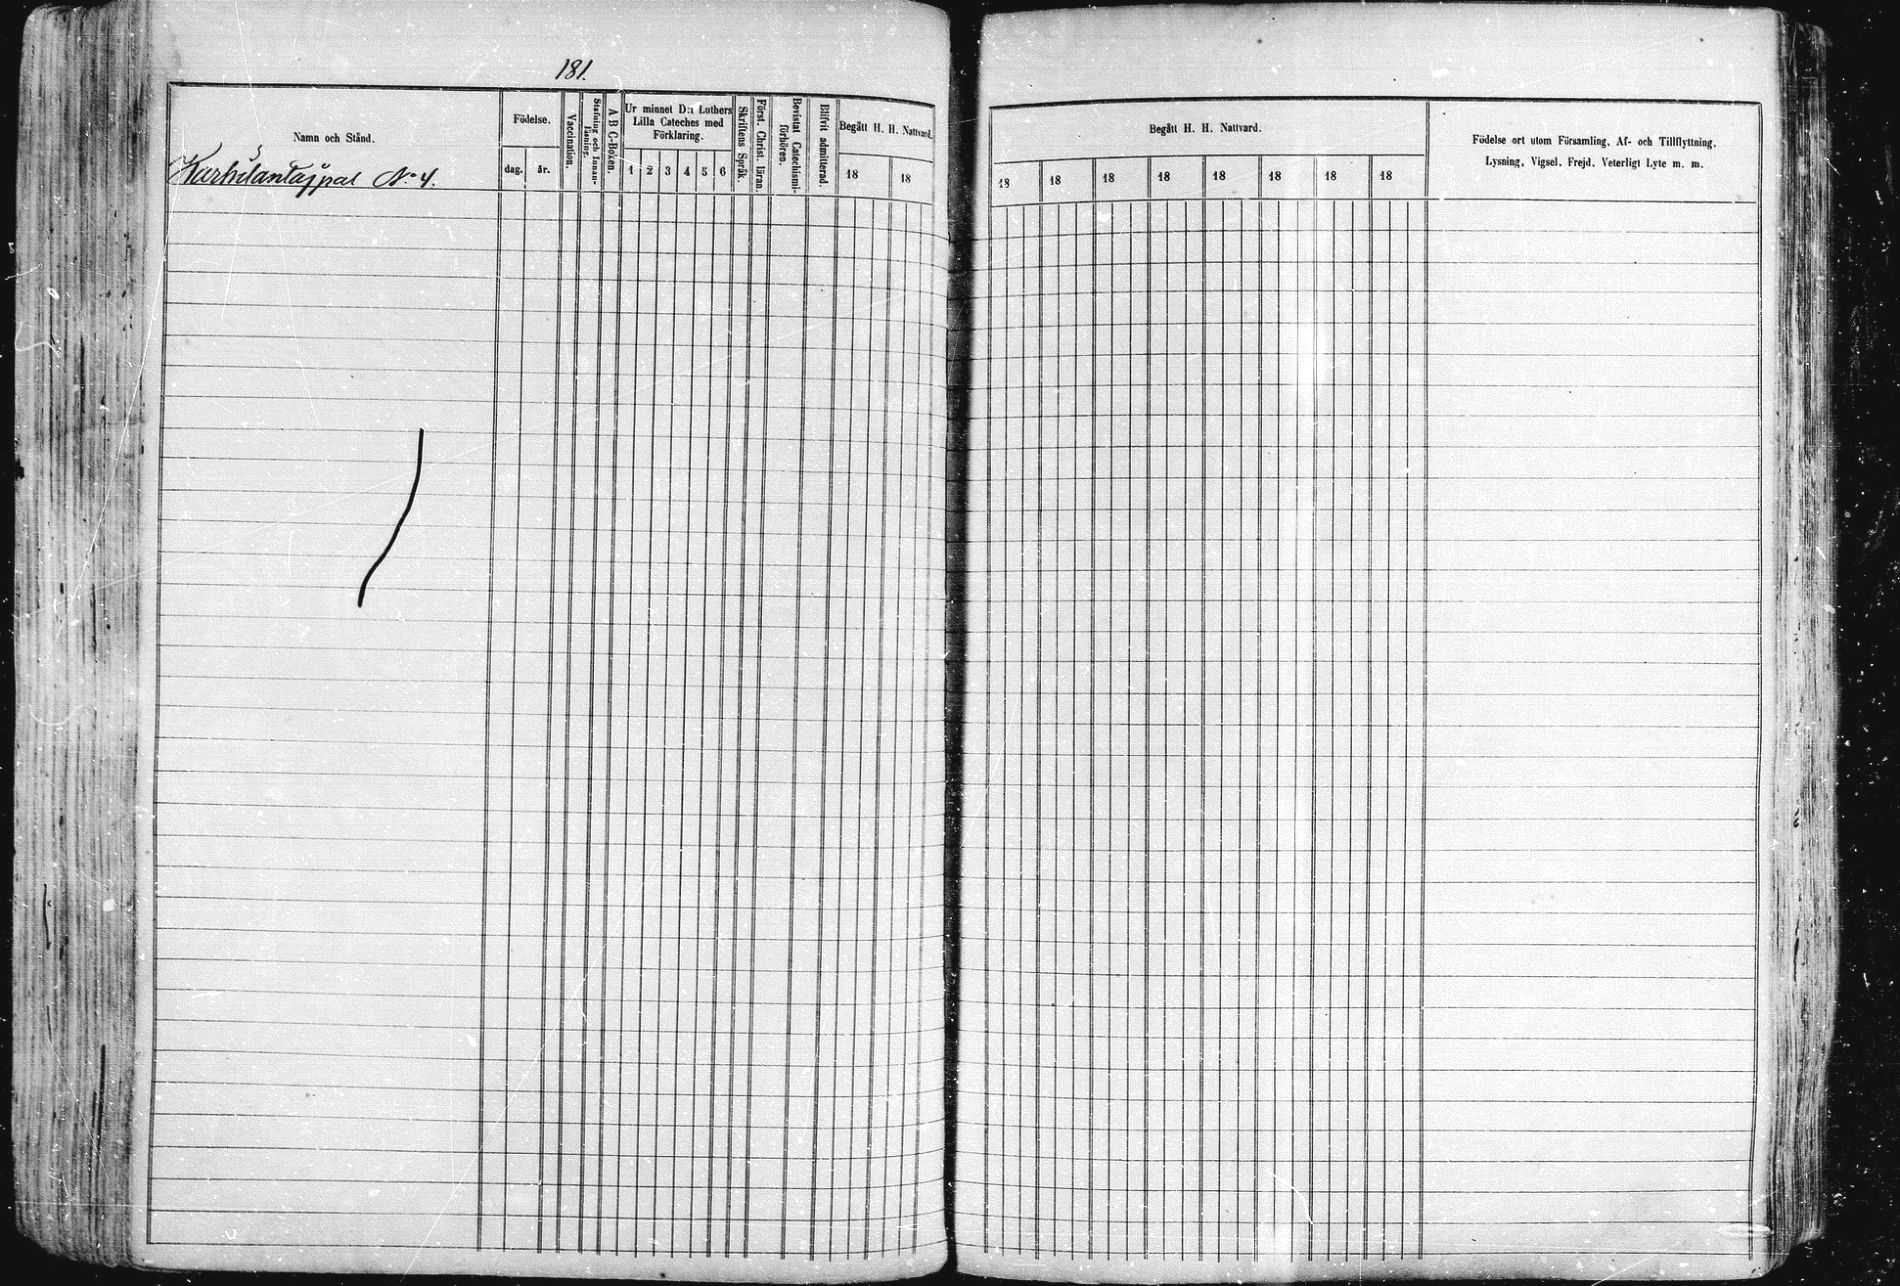 181.
Namn och Stånd.
N:o 4.
Födelse.
dag.
år.
Vaccination.
Stafning och Innan-
läsning.
A B C-Boken.
Ur minnet D:r Luthers
Lilla Cateches med
Förklaring.
1 2 3 4 5 6
Skriftens Språk.
Först. Christ. läran.
Bevistat Catechismi-
förhören.
Blifvit admitterad.
Begått H. H. Nattvard.
18 18
Begått H. H. Nattvard.
18 18 18 18 18 18 18 18
Födelse ort utom Församling. Af- och Tillflyttning.
Lysning, Vigsel. Frejd. Veterligt Lyte m. m.